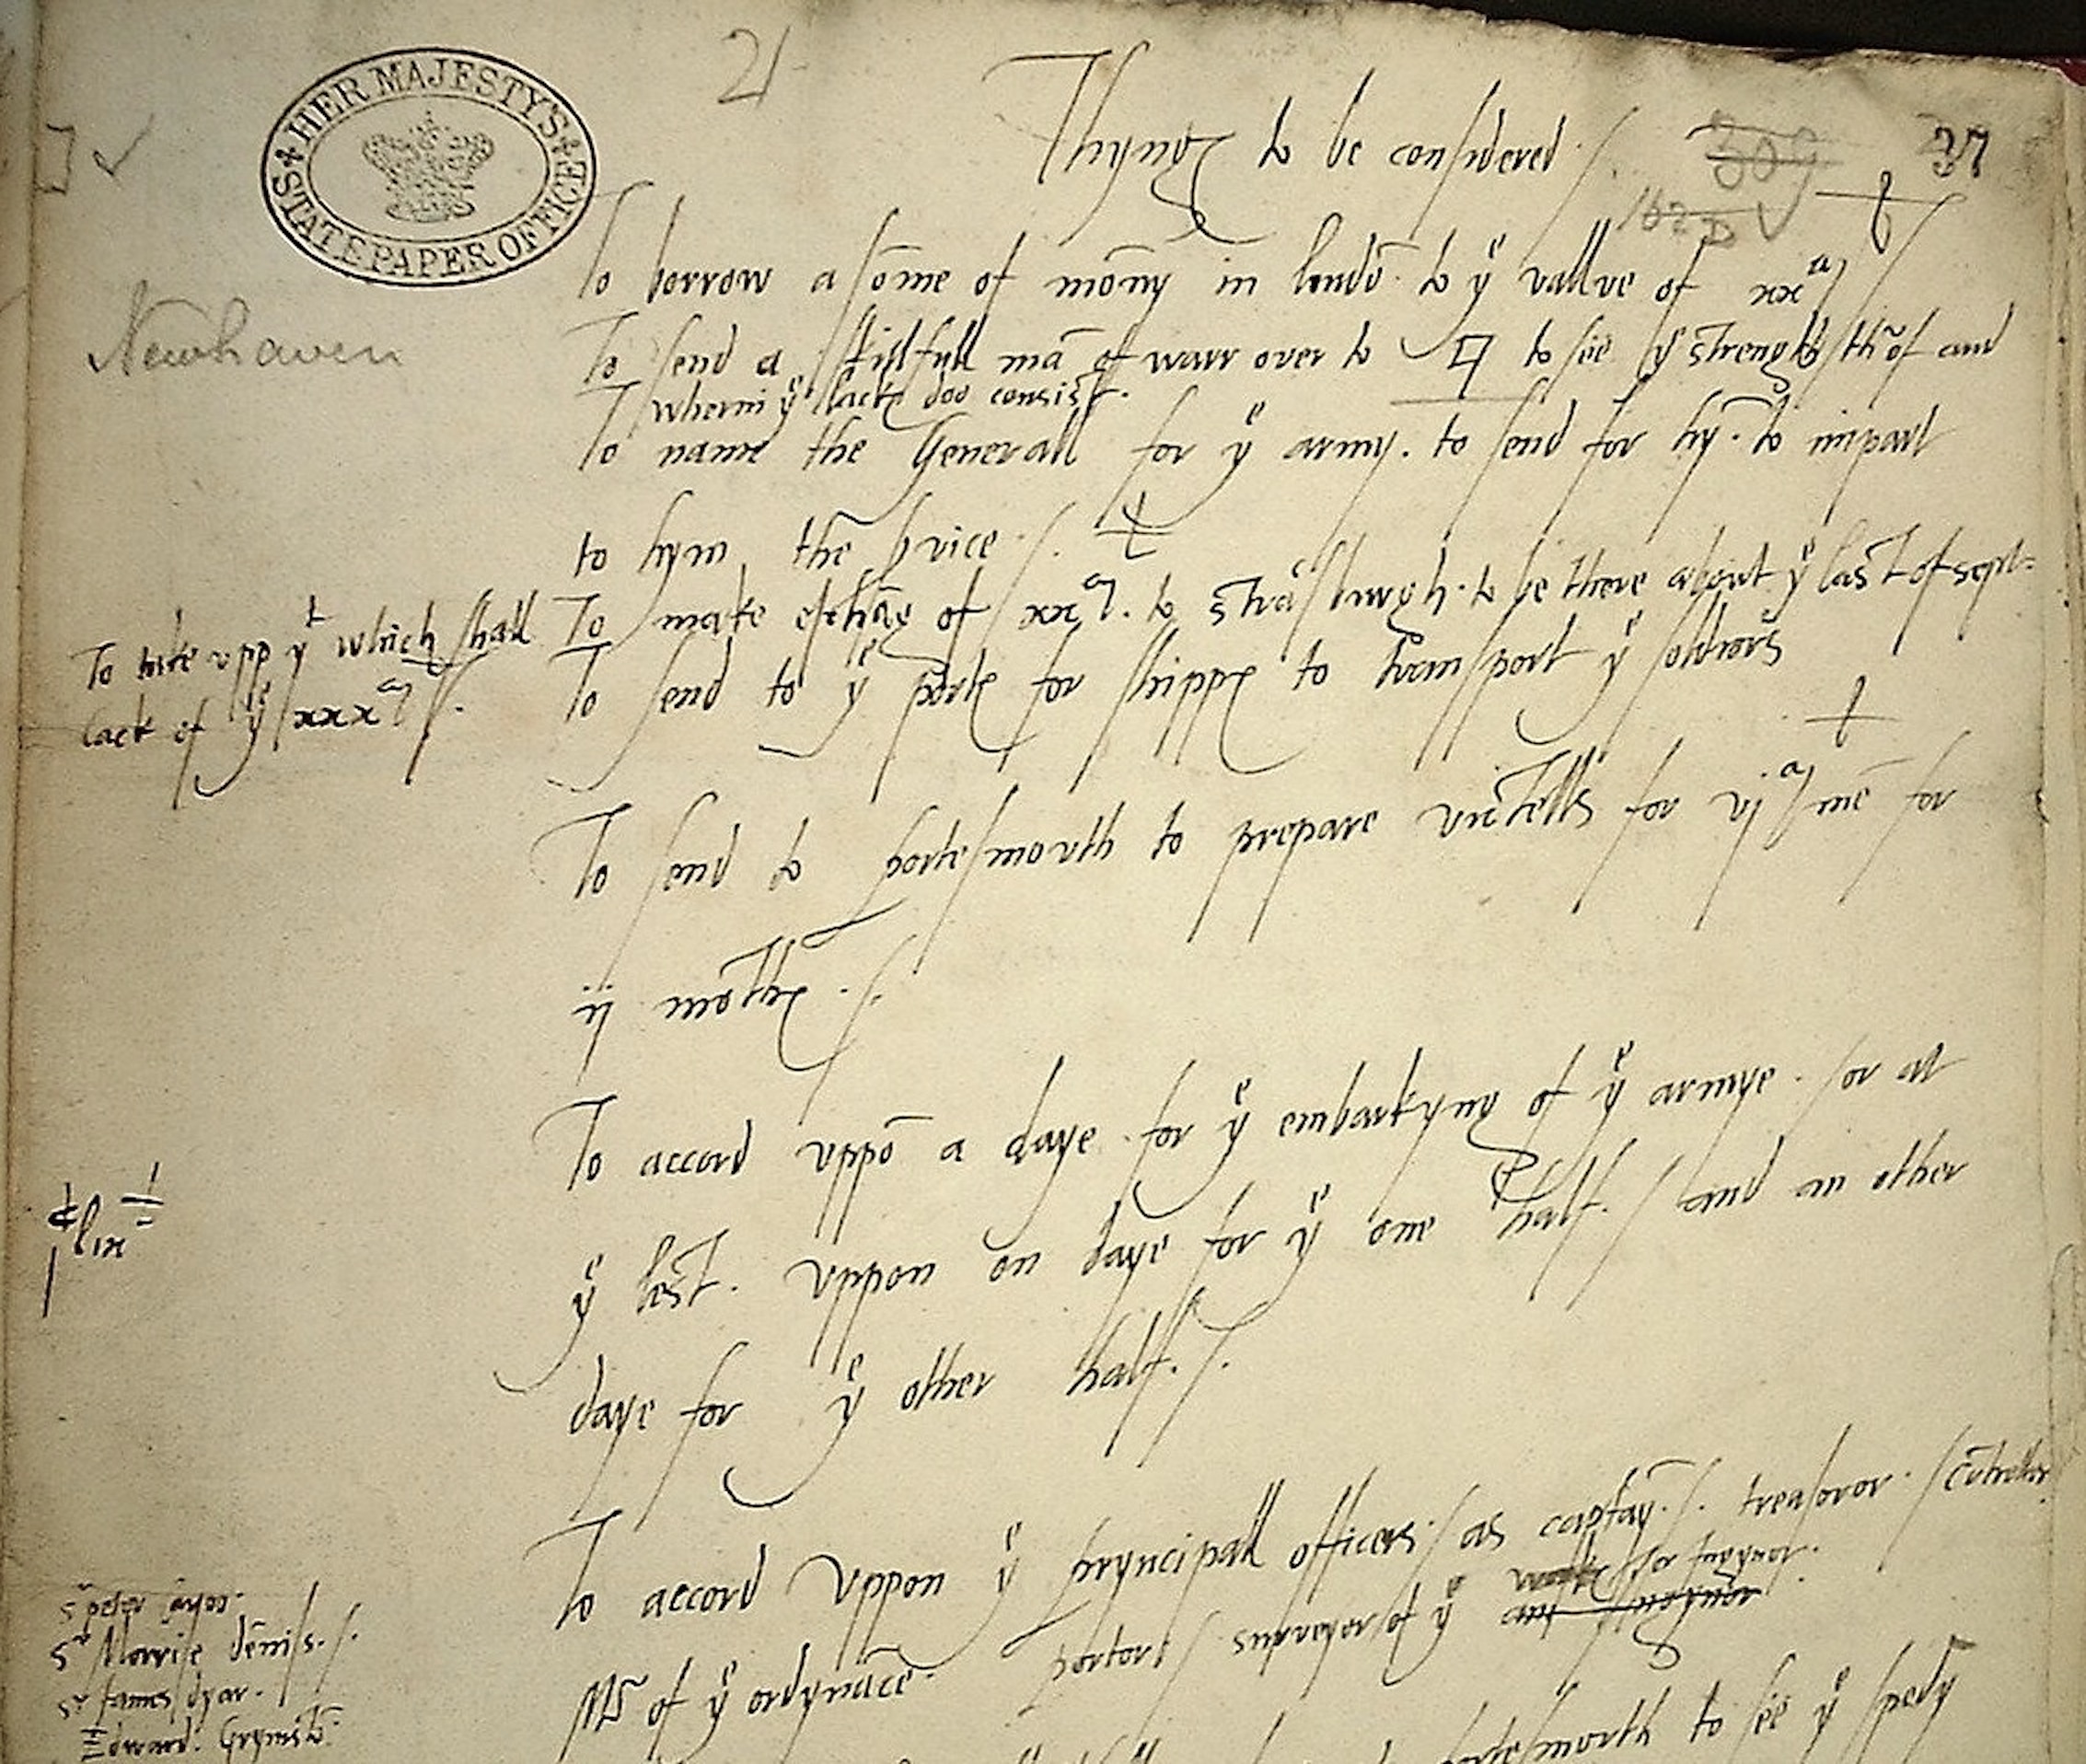 HER MAJESTY'S STATE PAPER OFFICE
21
37
Thyngs to be considered
Newhaven
To borrow a sōme of mōny in londō to yͤ vallue of xxᵐˡ
To send a skilfull mā of warr over to to see yͤ strength throf and
wherin yͤ lacks doo consist.
To name the Generall for yͤ army. to send for hy. to impart
to hym the service
To take upp yᵗ which shall
lack of yͤ xxxᵐˡ
To make exchāg of xxᵐˡ. to Strasburgh. to be there about yͤ last of sept
To send to yͤ ports for shipps to transport yͤ soldiors
To send to portesmouth to prepare victells for vjᵐ mē for
ij mōths
To accord uppō a daye for yͤ embarkyng of yͤ armye. or at
yͤ lest. uppon on daye for yͤ one half. and an other
daye for yͤ other half.
To accord uppon yͤ pryncipall officers. as captay. treasoror. cōtroller
Mʳ of yͤ ordynāce. portor surveyor of yͤ
Sʳ Morrise Dēnis.
Sʳ James dyar.
Edward. Grymstō
portesmouth to see yͤ spedy